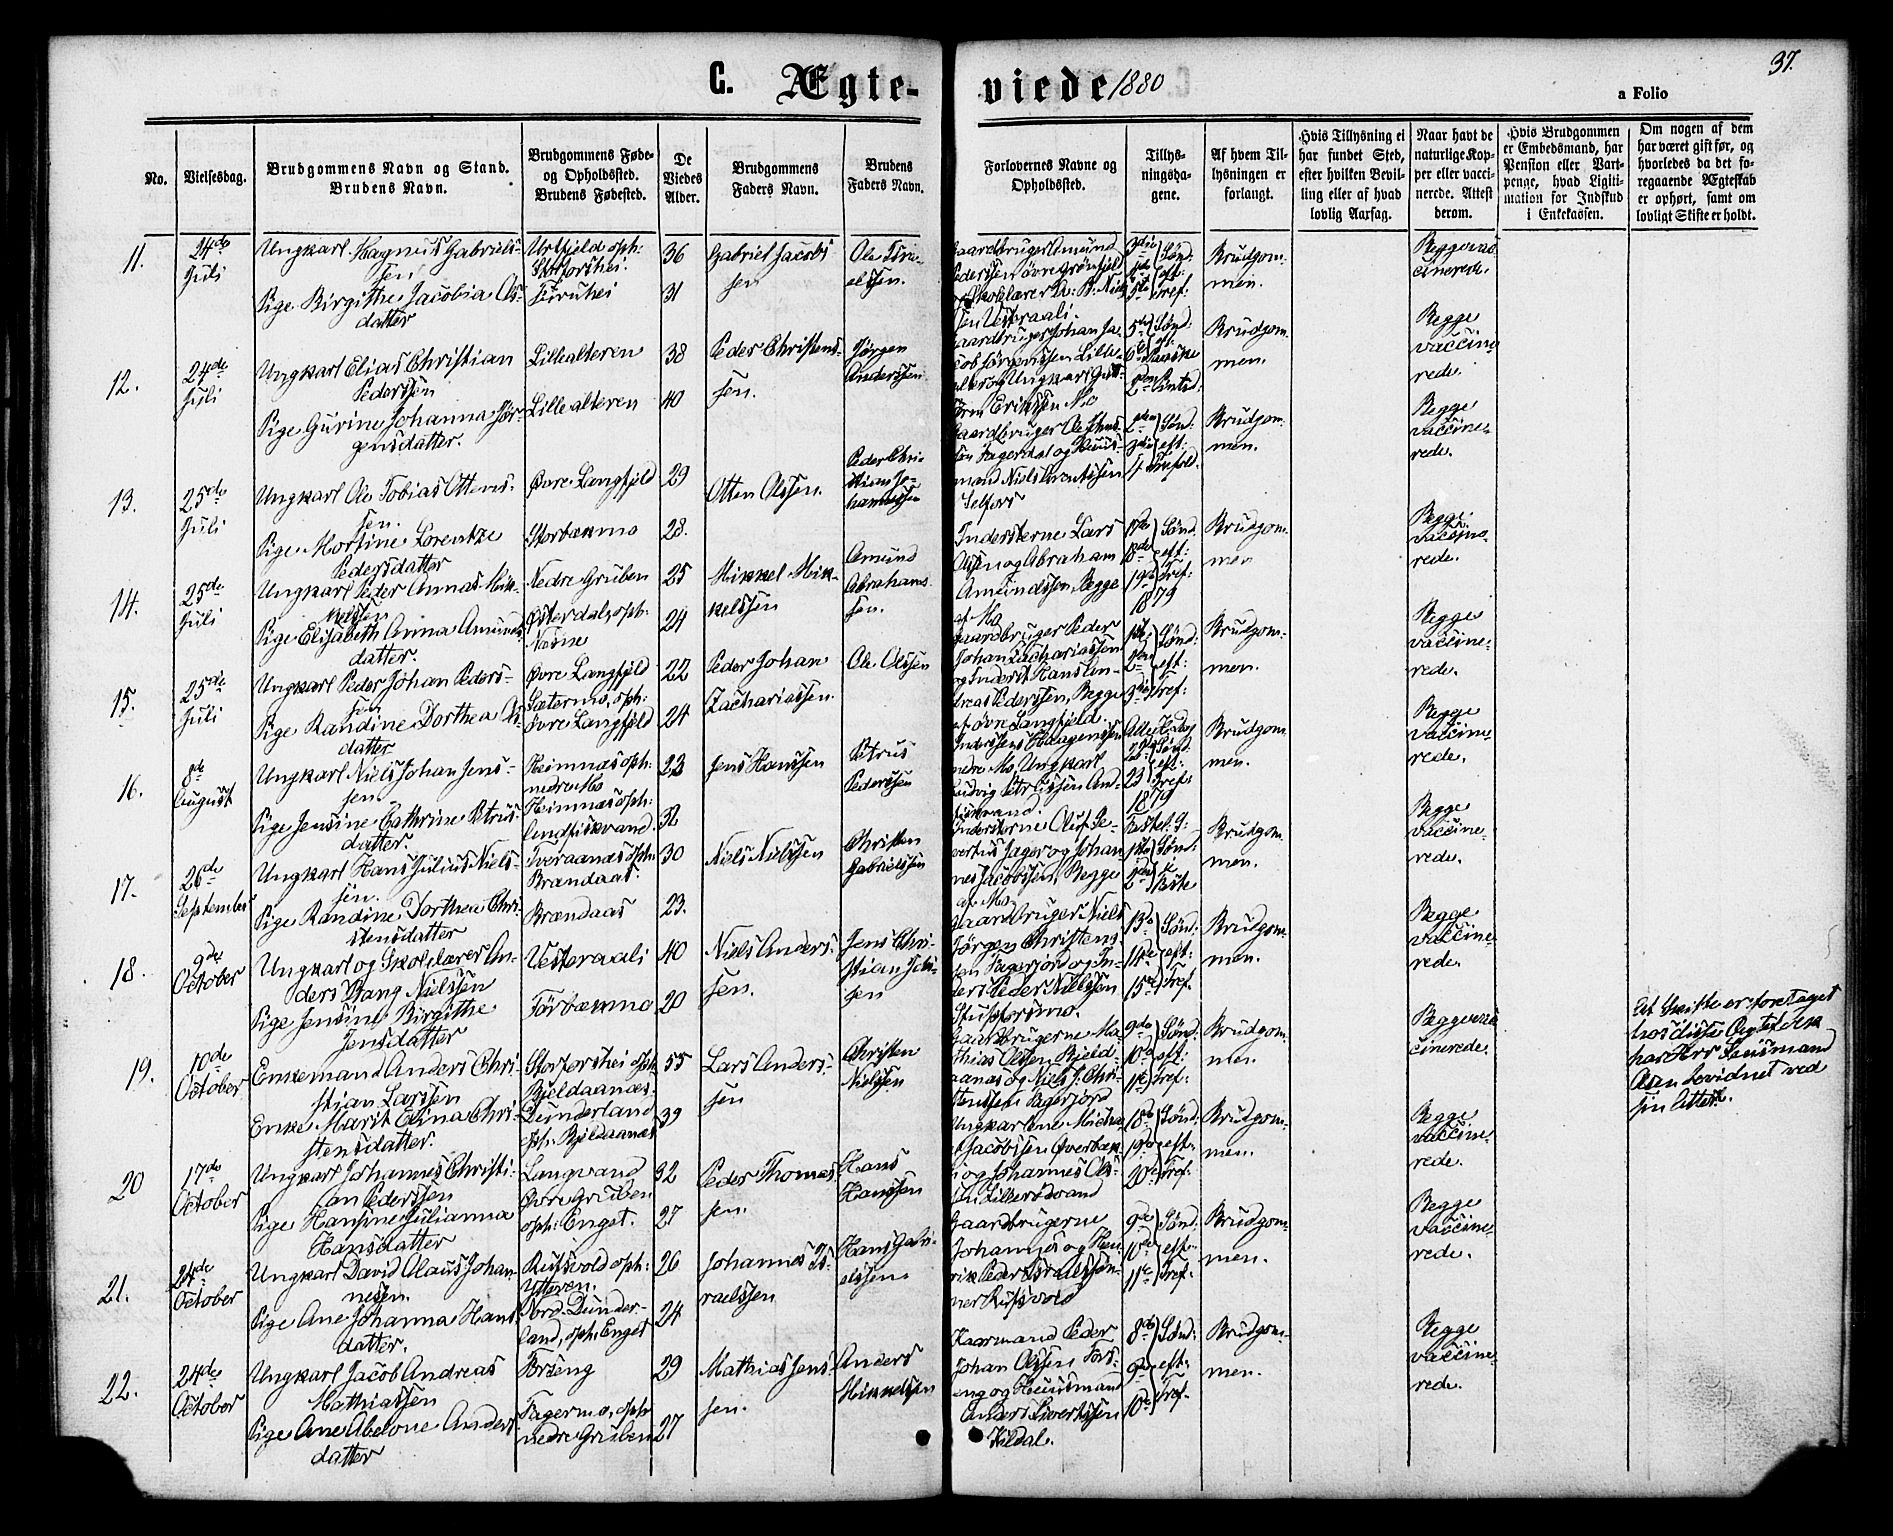 37.
C. Ægte-viede 1880
a Folio
No.
Vielsesdag.
Brudgommens Navn og Stand.
Brudens Navn.
Brudgommens Føde-
og Opholdssted.
Brudens Fødested.
De
Viedes
Alder.
Brudgommens
Faders Navn.
Brudens
Faders Navn.
Forlovernes Navne og
Opholdssted.
Tillys-
ningsda-
gene.
Af hvem Til-
lysningen er
forlangt.
Hvis Tillysning ei
har fundet Sted,
efter hvilken Bevil-
ling eller af hvad
lovlig Aarsag.
Naar havt de
naturlige Kop-
per eller vacci-
nerede. Attest
derom.
Hvis Brudgommen
er Embedsmand, har
Pension eller Vart-
penge, hvad Ligiti-
mation for Indskud
i Enkekassen.
Om nogen af dem
har været gift før, og
hvorledes da det fo-
regaaende Ægteskab
er ophørt, samt om
lovligt Skifte er holdt.
11.
24de
Juli
Ungkarl Magnus Gabriels-
sen
Pige Birgithe Jacobia Ols-
datter
Urtfjeld oph:
Storforshei.
Furuhei
36
31
Gabriel Jacob
sen
Ole Isra-
elssen.
Gaardbruger Amund
Pederssen øvre Grønfjeld
og Skolelærer A: B: Niels
sen Vesteraali.
3die Sønd:
4de eft:
5te Tref:
Brudgom-
men.
Begge vac
cinerede.
12.
24de
Juli
Ungkarl Elias Christian
Pederssen
Pige Gurine Johanna Jør-
gensdatter.
Lillealteren
Lillealteren
38
40
Peder Christens-
sen.
Jørgen
Anderssen
Gaardbruger Johan Ja-
cob Jørgenssen Lille-
Erikssen Mo
5te Sønd:
6te eft: Paaske
2den Pintsd:
Brudgom-
men.
Begge
vaccine
rede.
13.
25de
Juli
Ungkarl Ole Tobias Ottens-
sen.
Pige Mortine Lorentze
Pedersdatter
Øvre Langfjeld
Storbækmo
29
28.
Otten Olssen.
Peder Chri-
stian Jo-
hannessen
Gaardbruger Ole Johns-
sen Fagerdal og Huus-
mand Niels Berntssen
Selfors
2den Sønd:
3die eft:
4 Trefold.
Brudgom-
men.
Begge
vaccine-
rede.
14.
25de
Juli
Ungkarl Peder Annas Mik-
kelssen
Pige Elisabeth Anna Amunds
datter.
Nedre Gruben
Østerdal, oph:
Næsne
25
24
Mikkel Mik-
kelssen
Amund
Abrahams
sen.
Indersterne Lars
Olssen og Abraham
Amundssen, Begge
af Mo
17de Sønd:
18de eft:
19de Tref:
1879
Brudgom-
men
Begge
vaccine-
rede.
15.
25de
Juli
Ungkarl Peder Johan Peders-
sen
Pige Randine Dorthea Ols-
datter
Øvre Langfjeld
Sætermo, oph:
Øvre Langfjeld
22
24
Peder Johan
Zachariassen
Ole Olssen
Gaardbruger Peder
Johan Zachariassen
og Inderst Hans An-
dreas Pederssen, Begge
af øvre Langfjeld.
1ste Sønd:
2den eft:
3die Tref:
Brudgom-
men.
Begge
vaccine-
rede.
16.
8de
August
Ungkarl Niels Johan Jens-
sen.
Pige Jensine Cathrine Petrus-
datter.
Heimnæs oph:
nedre Mo
Heimnæs oph:
Andfiskvand.
23
32
Jens Hanssen
Petrus
Pederssen
nedre Mo, Ungkarl
Ludvig Petrussen And-
fiskvand.
Sønd:
eft:
23 Tref:
1879
Brudgom-
men.
Begge
vaccine-
rede.
17.
26de
September
Ungkarl Hans Julius Niels-
sen.
Pige Randine Dorthea Chri-
stensdatter
Tveraanæs oph:
Brændaas.
Brændaas
30
23.
Niels Nielssen
Christen
Gabrielssen
Inderstene Oluf Se-
vertius Jæger og Johan
nes Jacobssen, Begge
af Mo
1ste Sønd:
2den i
Faste
Brudgom-
men.
Begge
vaccine-
rede.
18.
9de
October
Ungkarl og Skolelærer An-
ders Bang Nielssen
Pige Jensine Birgithe
Jensdatter
Vesteraali
Tørbækmo
40
20
Niels Anders-
sen.
Jens Chri-
stian Jens-
sen
Gaardbruger Niels
Jørgen Christens-
sen Fagerjord og In-
derst Peder Nielssen
Stupforsmo.
13de Sønd:
14de eft:
15de Tref.
Brudgom-
men.
Begge
vaccine-
rede.
19.
10de
October
Enkemand Anders Chri-
stian Larssen
Enke Marit Elina Chri-
stensdatter.
Storforshei oph:
Bjeldaanæs.
Dunderland
oph: Bjeldaanæs
55
39
Lars Anders-
sen
Christen
Nielssen
Gaardbrugerne Ma-
thias Olssen Bjeld-
aanæs og Niels J. Chri-
stenssen Fagerjord
9de Sønd:
10de eft:
11te Tref:
Brudgom-
men.
Begge vac
cinerede.
At Skifte er foretaget
har Herr Lensmand
Olsen bevidnet ved
sin Attest.
20
17de
October
Ungkarl Johannes Christi-
an Pederssen
Pige Hansine Julianna
Hansdatter
Langvand
Øvre Gruben
oph: Enget.
32
27
Peder Thomas
sen.
Hans
Hanssen
Ungkarlene Micha
el Jacobssen Øverbæk
og Johannes Ols-
sen Lillerødvand
18de Sønd:
19de eft:
20de Tref.
Brudgom-
men.
Begge
vaccine-
rede.
21.
24de
October
Ungkarl David Olaus Johan-
nessen.
Pige Ane Johanna Hans-
datter.
Rufsvold oph:
Ytteren.
Nord-Dunder-
land, oph: Enget
26
24
Johannes Is-
raelssen
Hans Gabri-
elssen
Gaardbrugerne
Johannes og Hen
rik Peder Israelssøn-
ner Rufsvold
9de Sønd:
10de eft:
11te Tref:
Brudgom-
men.
Begge
vaccine-
rede.
22.
24de
October
Ungkarl Jacob Andreas
Mathiassen
Pige Ane Abelone Anders
datter
Forseng
Fagermo, oph:
nedre Gruben
29
27
Mathias Jens-
sen.
Anders
Mikkelssen
Kaarmand Peder
Johan Olssen Fors-
eng og Huusmand
Anders Sivertssen
Hildal.
8de Sønd:
9de eft:
10de Tref.
Brudgom-
men.
Begge
vaccine-
rede.